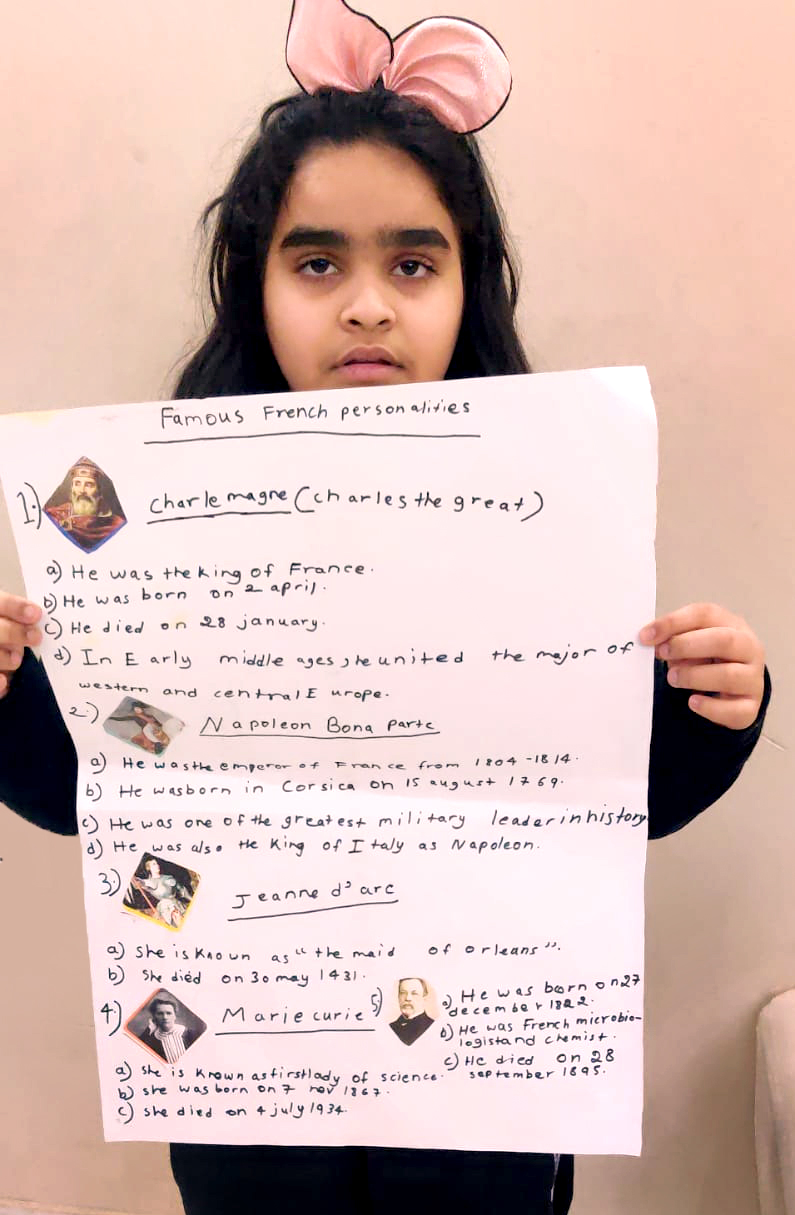 Famous French personalities
1.) Charlemagne (Charles the great)
a) He was the king of France.
b) He was born on 2 april.
c) He died on 28 january.
d) In Early middle ages, he united the major of
western and central Europe.
2.) Napoleon Bona parte
a) He was the emperor of France from 1804 - 1814.
b) He was born in Corsica on 15 august 1769.
c) He was one of the greatest military leader in history
d) He was also the King of Italy as Napoleon.
3.) Jeanne d'arc
a) she is Known as "the maid of orleans".
b) She died on 30 may 1431.
4) Marie curie
a) she is known as first lady of science.
b) she was born on 7 nov 1867.
c) she died on 4 july 1934.
5)
a) He was born on 27
december 1822.
b) He was French microbio-
logist and chemist.
c) He died on 28
september 1895.